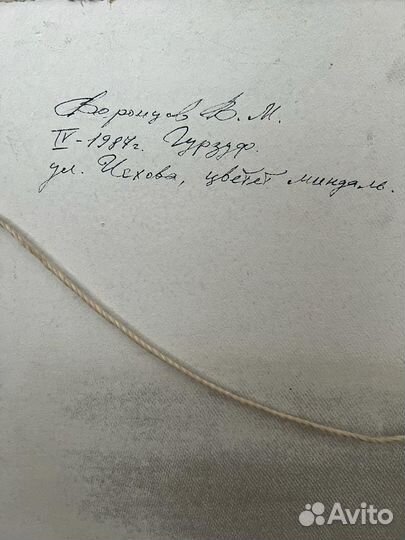 Воронцов В. М.
IV-1987г. Гурзуф.
ул. Чехова, цветет миндаль.
Avito